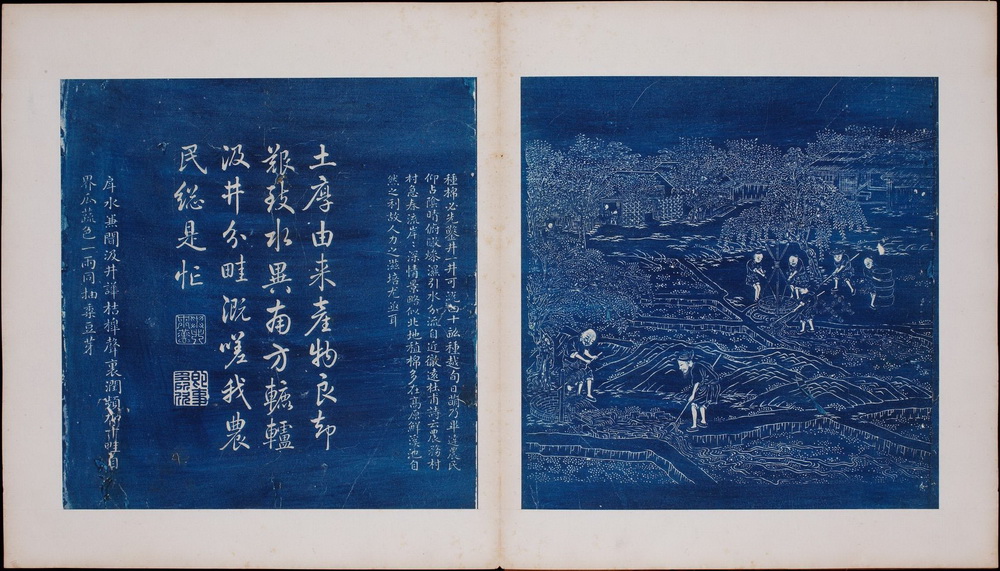 種棉必先鑿井一井可溉四十畝種越旬日萌乃畢達農民
仰占陰晴俯瞰燥濕引水分流自近徹遠杜甫詩云農務村
村急春流岸〻深情景略似北地植棉多在高原鮮溪池自
然之利故人力之滋培尤亟耳
土厚由来產物良却
艱致水異南方轆轤
汲井分畦溉嗟我農
民総是忙
戽水兼聞汲井譁桔槔聲裏潤頻加千畦自
界瓜蔬色一雨同抽黍豆芽